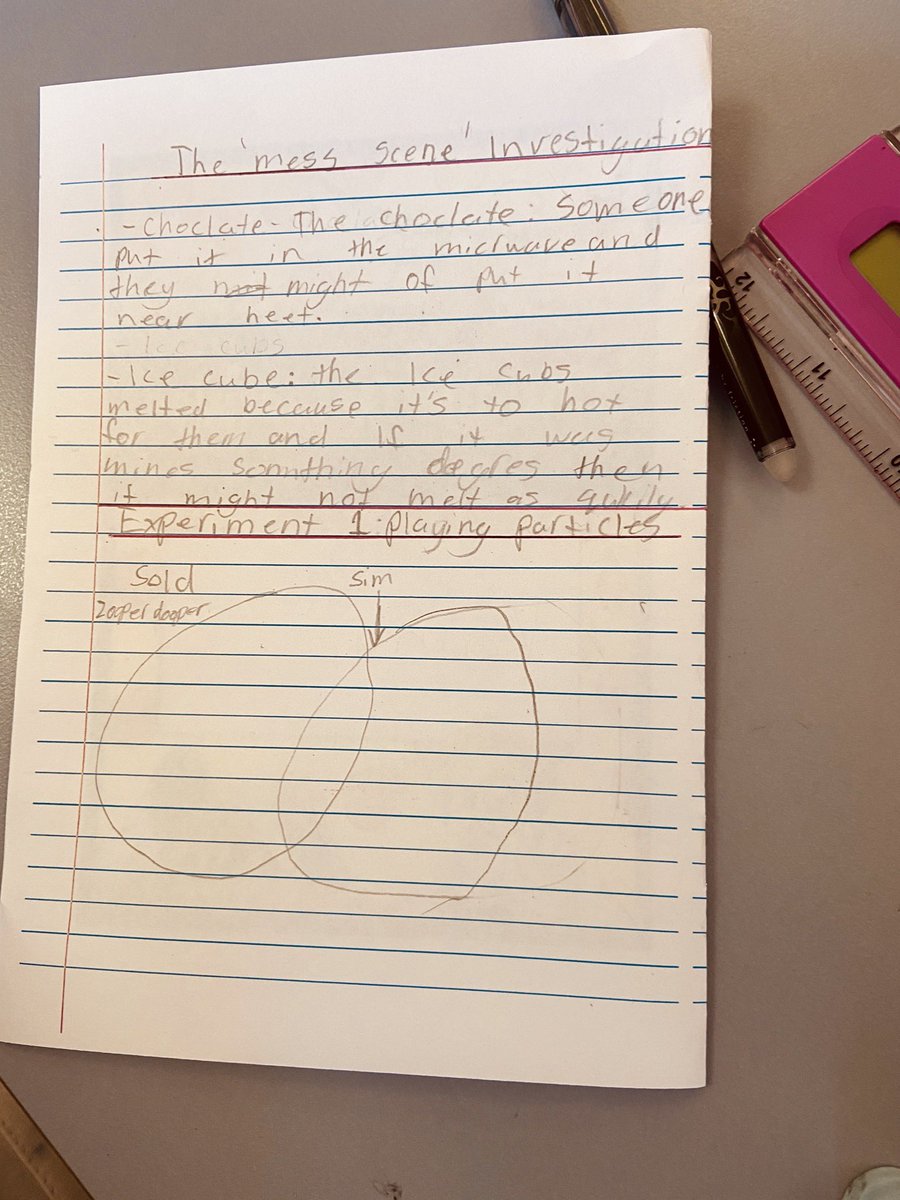 The 'mess scene' Investigation
- Choclate - The choclate: Someone
put it in the micrwave and
they might of put it
near heet.
- Ice cubs
- Ice cube: the Ice cubs
melted because it's to hot
for them and If it was
mines somnthing degres then
it might not melt as quikly
Experiment 1: playing particles
Sold
Sim
Zooper dooper
12
11